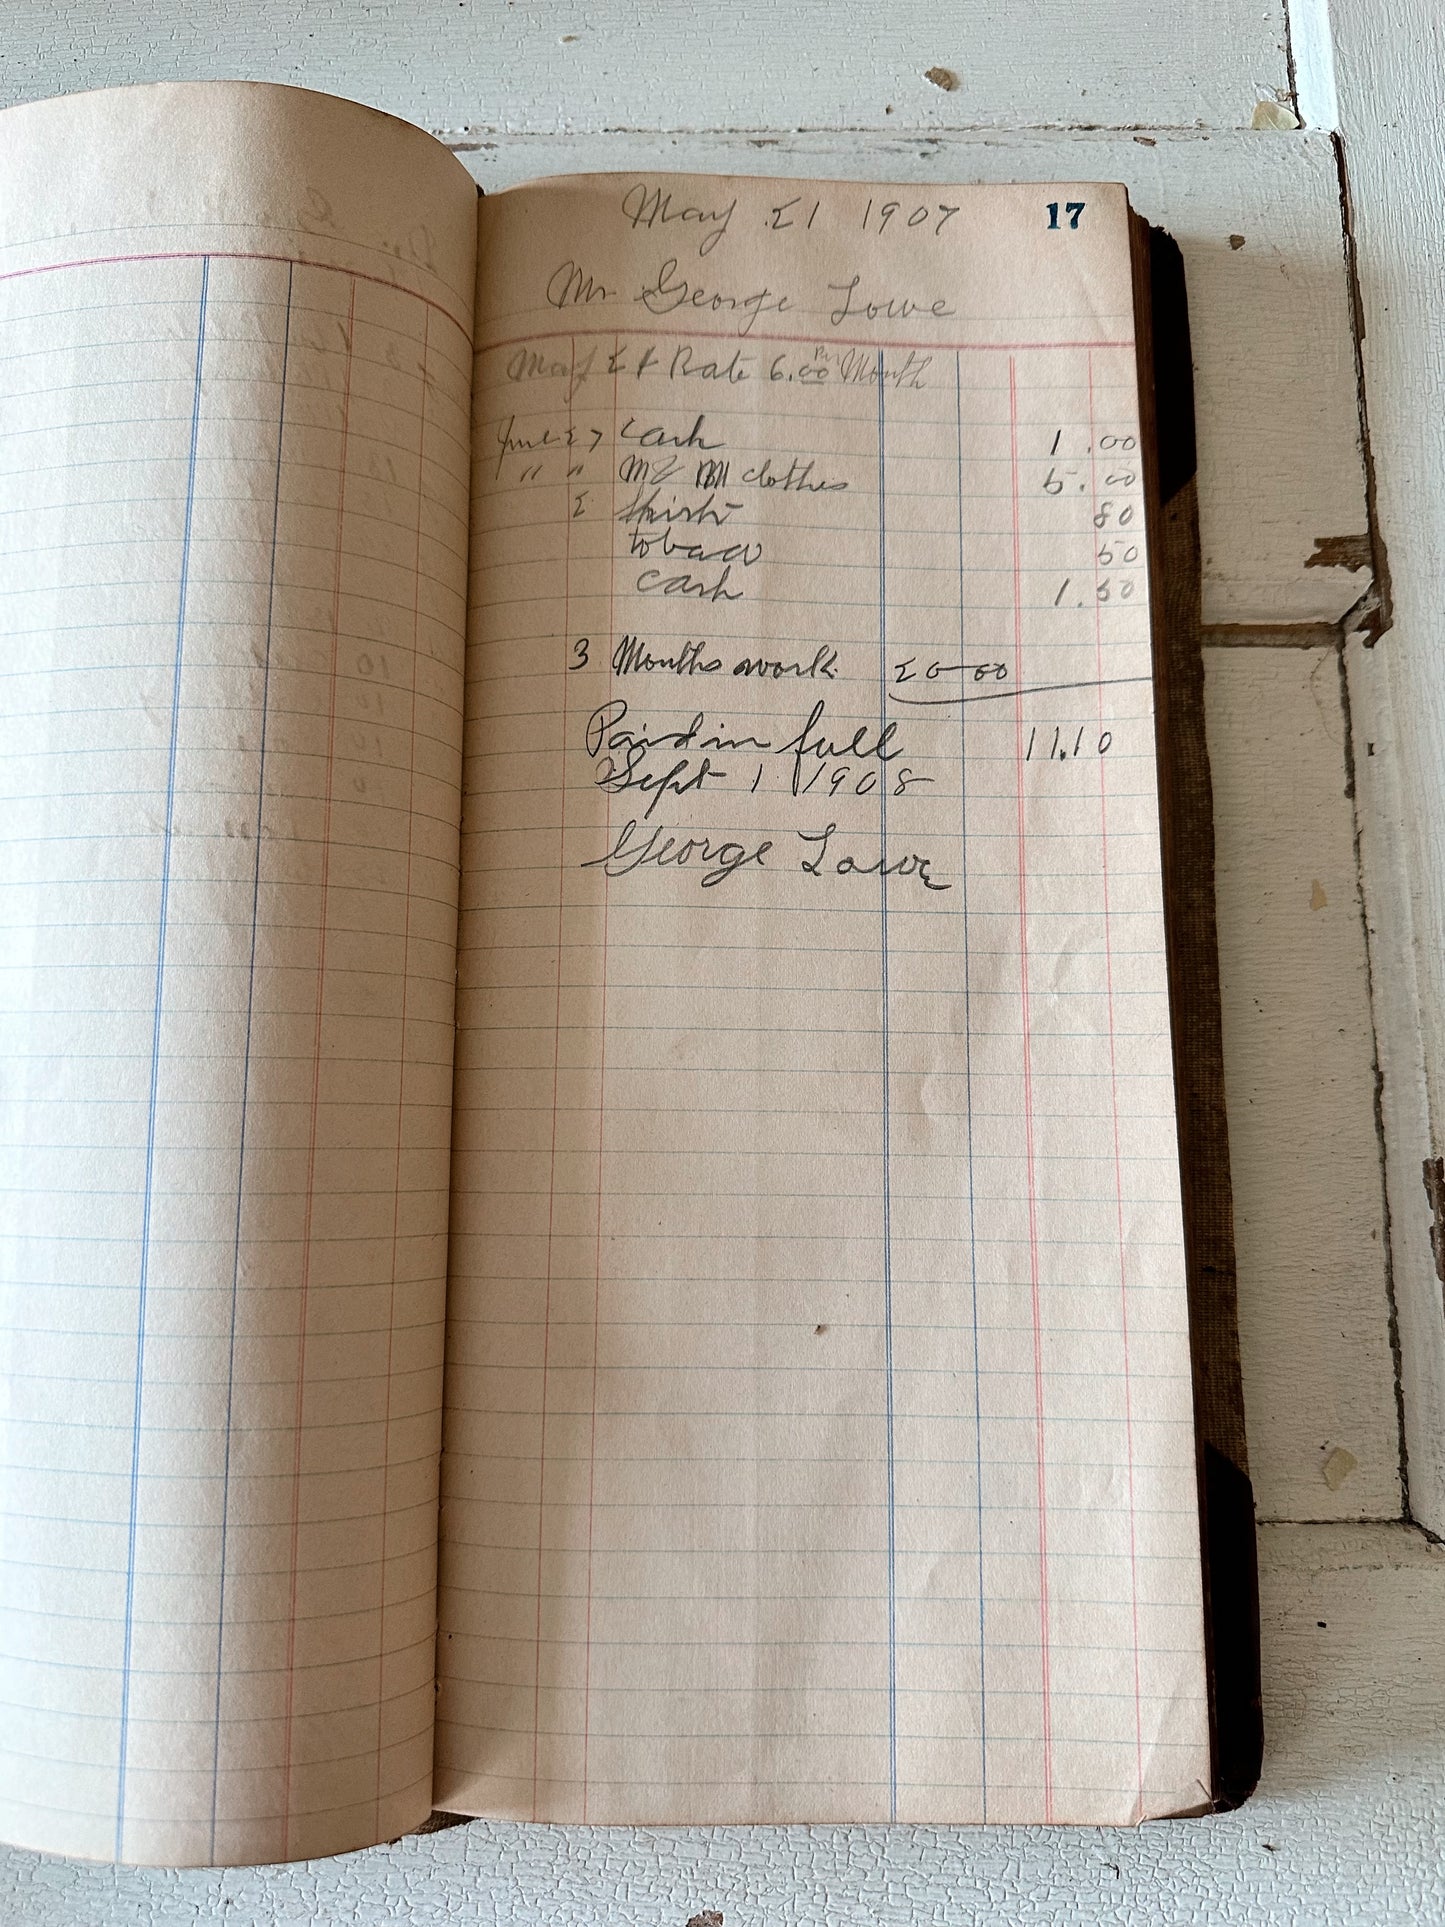 May 21 1907 17
Mr George Lowe
May 21 Rate 6.00 Per Month
June 27 cash 1.00
" " clothes 5.00
2 shirts 80
tobaco 50
cash 1.50
3 Months work 20 00
Paid in full 11.10
Sept 1 1908
George Lowe